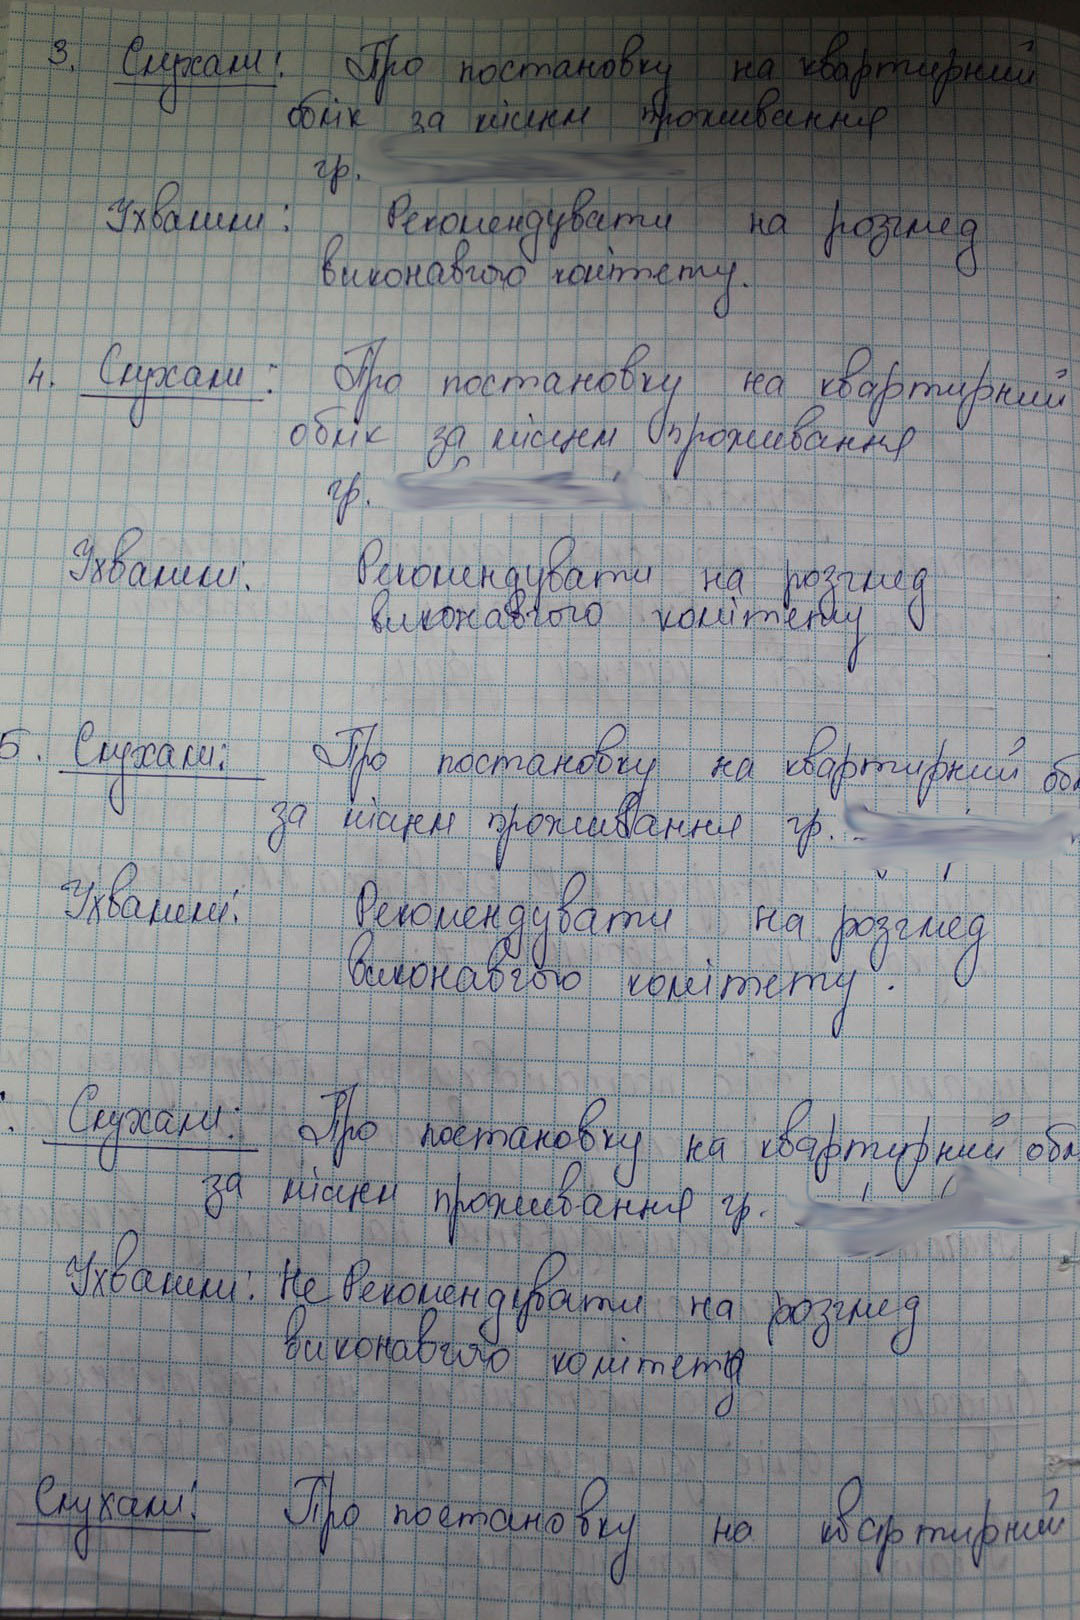 3. Слухали: Про постановку на квартирний
облік за місцем проживання
гр.
Ухвалили: Рекомендувати на розгляд
виконавчого комітету.
4. Слухали: Про постановку на квартирний
облік за місцем проживання
гр.
Ухвалили: Рекомендувати на розгляд
виконавчого комітету
5. Слухали: Про постановку на квартирний обл
за місцем проживання гр.
Ухвалили: Рекомендувати на розгляд
виконавчого комітету.
Слухали: Про постановку на квартирний обл
за місцем проживання гр.
Ухвалили: Не Рекомендувати на розгляд
виконавчого комітету
Слухали: Про постановку на квартирний